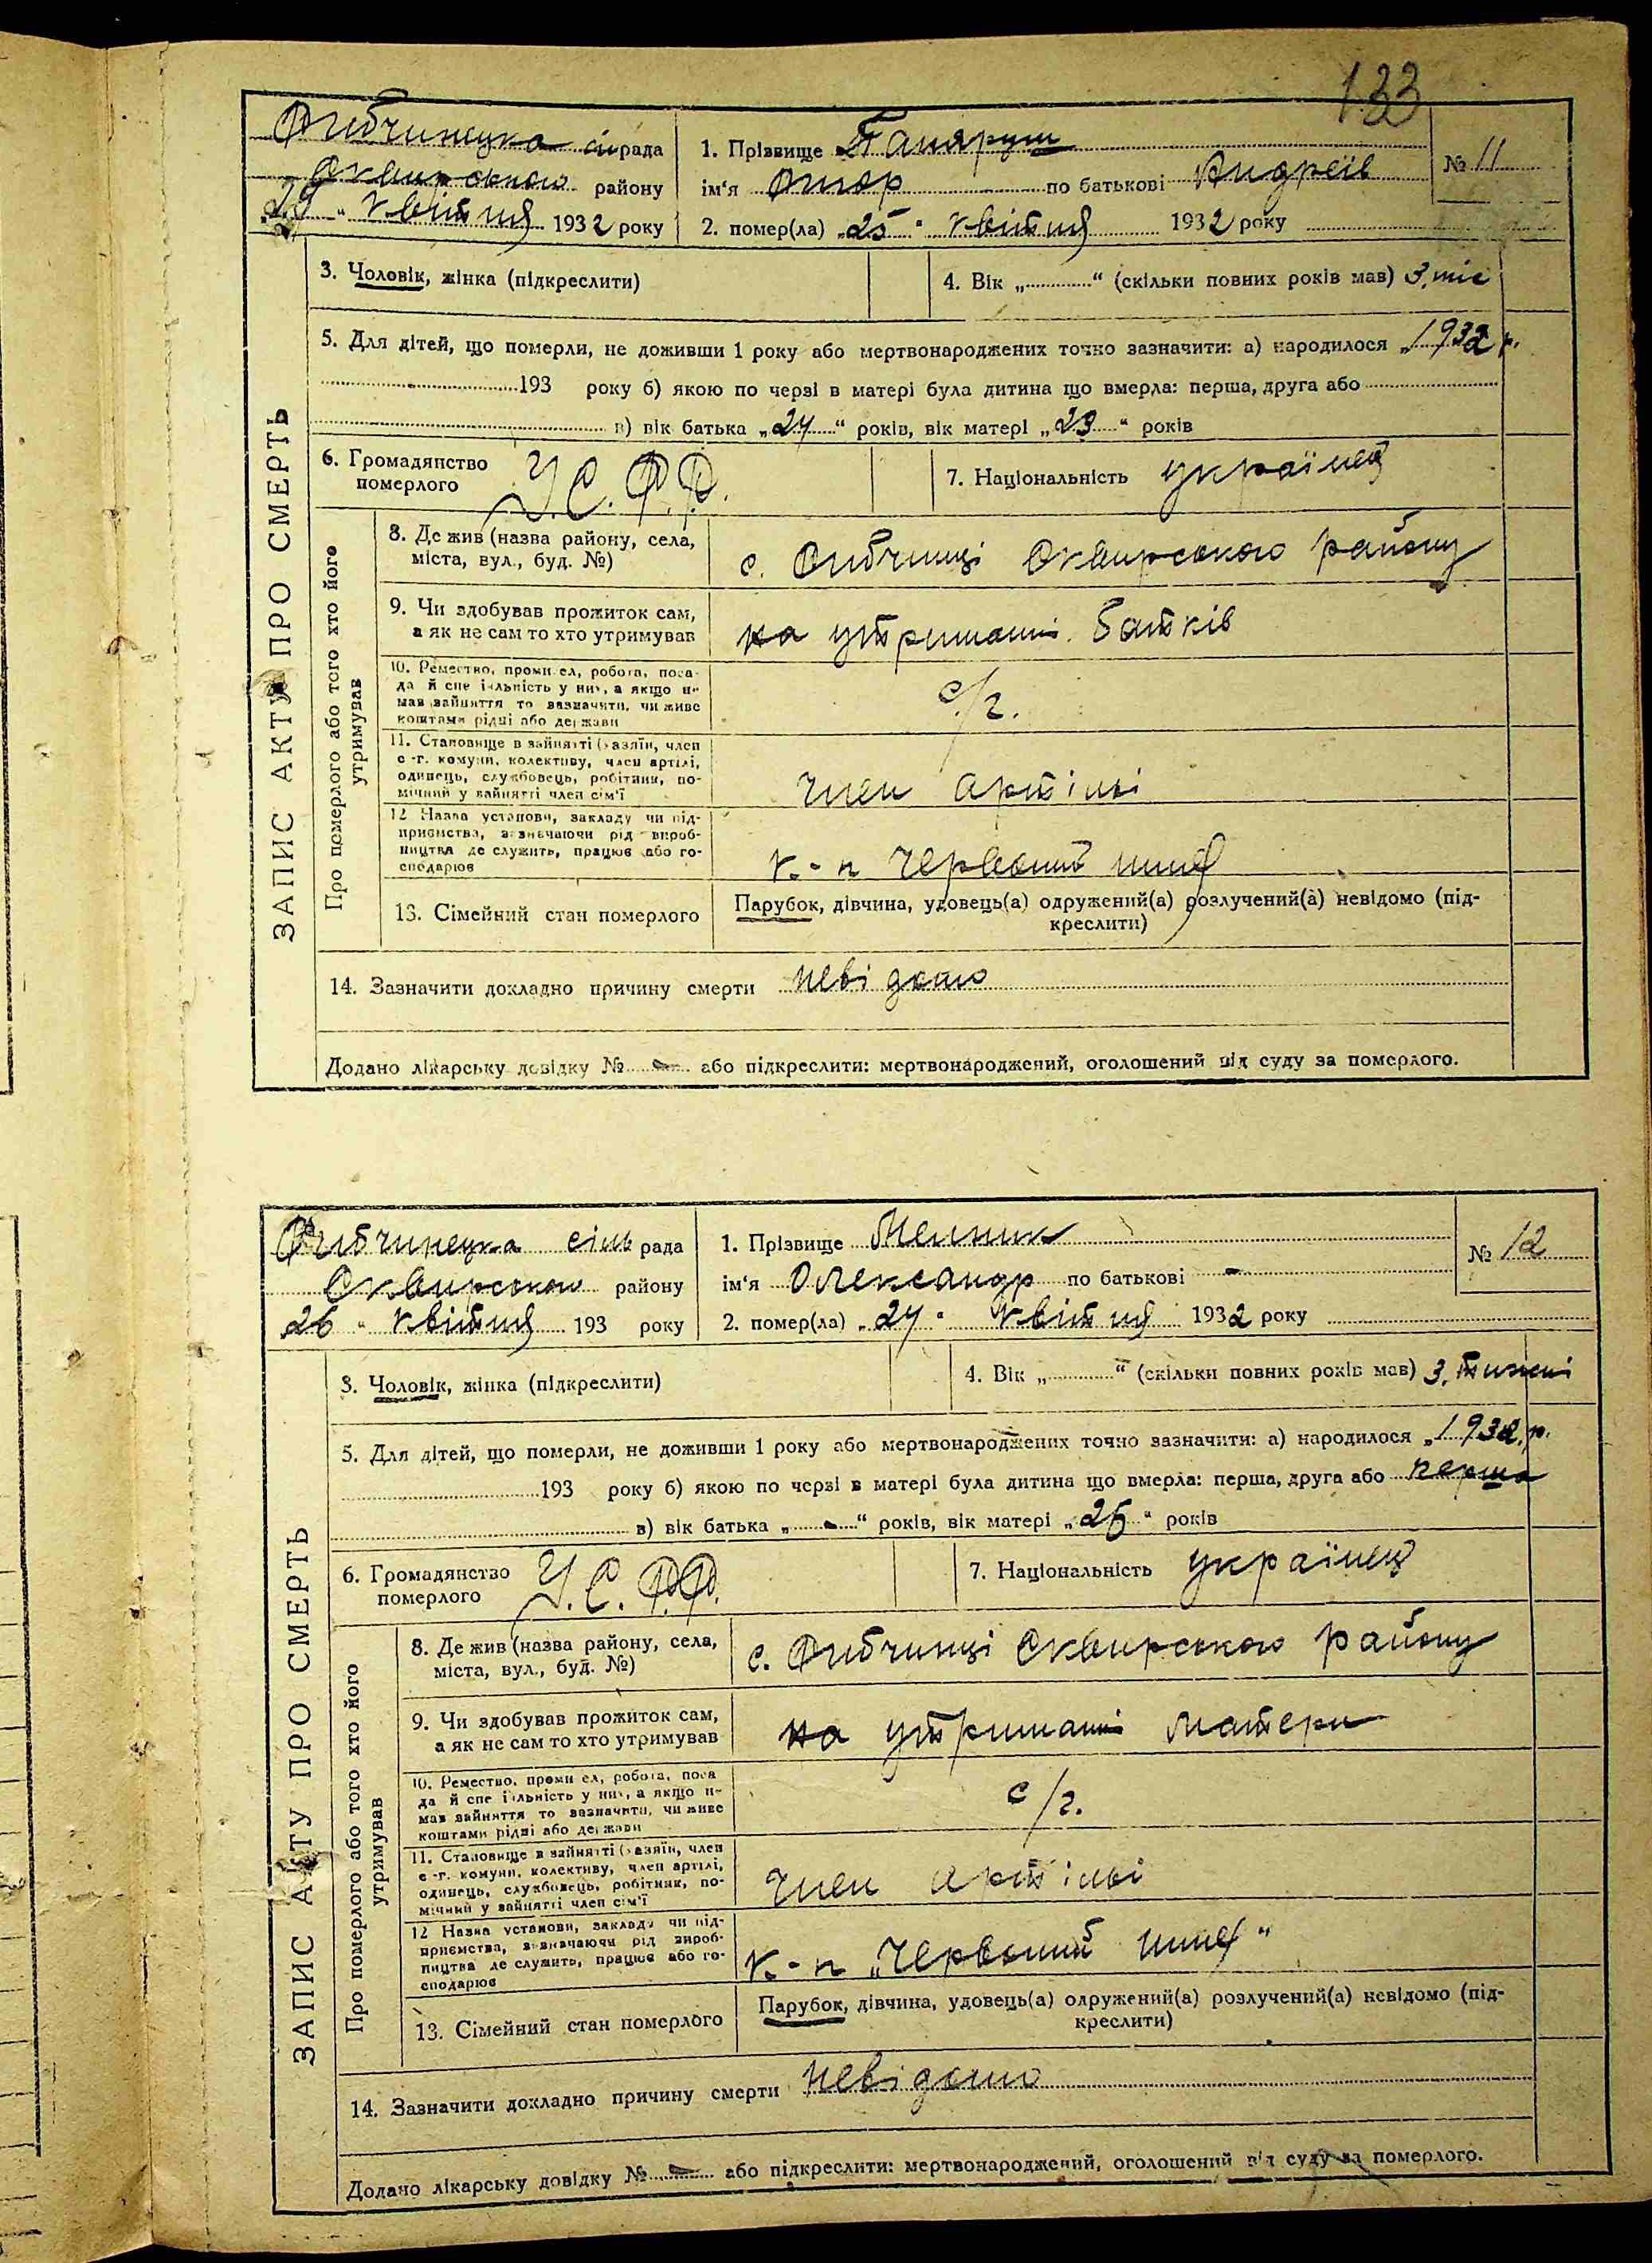 133
рада
1. Прізвище
№ 11
Сквирського району
ім'я
по батькові Андреїв
квітня 1932 року
2. помер(ла) „25" квітня 1932 року
ЗАПИС АКТУ ПРО СМЕРТЬ
3. Чоловік, жінка (підкреслити)
4. Вік „............" (скільки повних років мав) 3. міс
5. Для дітей, що померли, не доживши 1 року або мертвонароджених точно зазначити: а) народилося „1932 р.
193 року б) якою по черзі в матері була дитина що вмерла: перша, друга або
в) вік батька „24" років, вік матері „23" років
6. Громадянство померлого У.С.Р.Р.
7. Національність українец
Про померлого або того хто його утримував
8. Де жив (назва району, села,
міста, вул., буд. №)
с. Рибчинці Сквирського району
9. Чи здобував прожиток сам,
а як не сам то хто утримував
на утриманні батьків
10. Ремество, промисел, робота, поса-
да й спеціяльність у них, а якщо н-
мав зайняття то зазначити, чи живе
коштами рідні або держави
с/г.
11. Становище в зайнятті (хазяїн, член
с-г. комуни, колективу, член артілі,
одинець, службовець, робітник, по-
мічний у зайнятті член сім'ї
член артілі
12 Назва установи, закладу чи під-
приємства, зазначаючи рід вироб-
ництва де служить, працює або го-
сподарює
к-п Червоний
13. Сімейний стан померлого
Парубок, дівчина, удовець(а) одружений(а) розлучений(а) невідомо (під-
креслити)
14. Зазначити докладно причину смерти невідомо
Додано лікарську довідку № - або підкреслити: мертвонароджений, оголошений від суду за померлого.
Рибчинецка сіль рада
1. Прізвище Мельник
№ 12
Сквирського району
ім'я Олександр по батькові -
26 " квітня 193 року
2. помер(ла) „24" квітня 1932 року
ЗАПИС АКТУ ПРО СМЕРТЬ
3. Чоловік, жінка (підкреслити)
4. Вік „............" (скільки повних років мав) 3. тижні
5. Для дітей, що померли, не доживши 1 року або мертвонароджених точно зазначити: а) народилося „1932.р.
193 року б) якою по черзі в матері була дитина що вмерла: перша, друга або перша
в) вік батька „-" років, вік матері „25" років
6. Громадянство померлого У.С.Р.Р.
7. Національність українец
Про померлого або того хто його утримував
8. Де жив (назва району, села,
міста, вул., буд. №)
с. Рибчинці Сквирського району
9. Чи здобував прожиток сам,
а як не сам то хто утримував
на утриманні матери
10. Ремество, промисел, робота, поса
да й спеціяльність у них, а якщо н-
мав зайняття то зазначити, чи живе
коштами рідні або держави
с/г.
11. Становище в зайнятті (хазяїн, член
с-г. комуни, колективу, член артілі,
одинець, службовець, робітник, по-
мічний у зайнятті член сім'ї
член артілі
12 Назва установи, закладу чи під-
приємства, зазначаючи рід вироб-
ництва де служить, працює або го-
сподарює
к-п „Червоний
13. Сімейний стан померлого
Парубок, дівчина, удовець(а) одружений(а) розлучений(а) невідомо (під-
креслити)
14. Зазначити докладно причину смерти невідомо
Додано лікарську довідку № - або підкреслити: мертвонароджений, оголошений від суду за померлого.